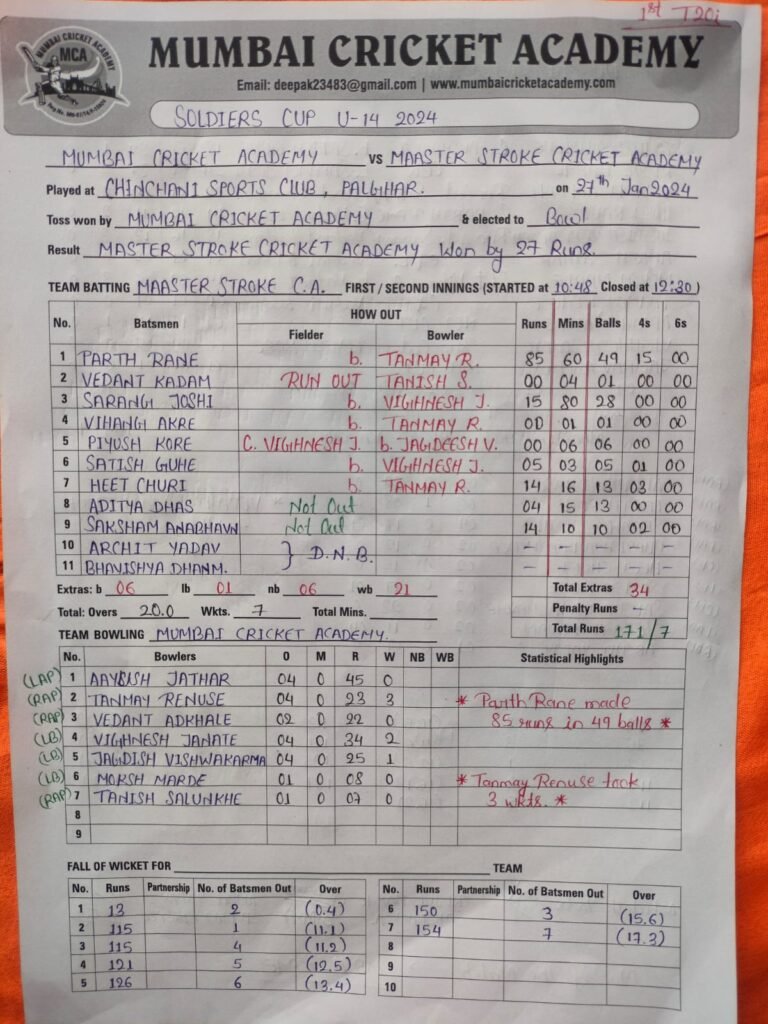 1st T20i
MUMBAI CRICKET ACADEMY
MCA
MUMBAI CRICKET ACADEMY
Email: deepak23483@gmail.com | www.mumbaicricketacademy.com
SOLDIERS CUP U-14 2024
MUMBAI CRICKET ACADEMY VS MAASTER STROKE CRICKET ACADEMY
Played at CHINCHANI SPORTS CLUB, PALGHAR. on 27th Jan 2024
Toss won by MUMBAI CRICKET ACADEMY & elected to Bowl
Result MASTER STROKE CRICKET ACADEMY Won by 27 Runs.
TEAM BATTING MAASTER STROKE C.A. FIRST / SECOND INNINGS (STARTED at 10:48 Closed at 12:30)
No. Batsmen HOW OUT Runs Mins Balls 4s 6s
Fielder Bowler
1 PARTH RANE b. TANMAY R. 85 60 49 15 00
2 VEDANT KADAM RUN OUT TANISH S. 00 04 01 00 00
3 SARANG JOSHI b. VIGHNESH J. 15 80 28 00 00
4 VIHANG AKRE b. TANMAY R. 00 01 01 00 00
5 PIYUSH KORE C. VIGHNESH J. b. JAGDEESH V. 00 06 06 00 00
6 SATISH GUHE b. VIGHNESH J. 05 03 05 01 00
7 HEET CHURI b. TANMAY R. 14 16 13 03 00
8 ADITYA DHAS Not Out 04 15 13 00 00
9 SAKSHAM ANABHAVN Not Out 14 10 10 02 00
10 ARCHIT YADAV } D.N.B. - - - - -
11 BHAVISHYA DHANM. - - - - -
Extras: b 06 lb 01 nb 06 wb 21 Total Extras 34
Penalty Runs -
Total: Overs 20.0 Wkts. 7 Total Mins. Total Runs 171/7
TEAM BOWLING MUMBAI CRICKET ACADEMY.
No. Bowlers O M R W NB WB Statistical Highlights
(LAP) 1 AAYUSH JATHAR 04 0 45 0
(RAP) 2 TANMAY RENUSE 04 0 23 3 * Parth Rane made
(RAP) 3 VEDANT ADKHALE 02 0 22 0 85 runs in 49 balls *
(LB) 4 VIGHNESH JANATE 04 0 34 2
(LB) 5 JAGDISH VISHWAKARMA 04 0 25 1
(LB) 6 MOKSH MARDE 01 0 08 0 * Tanmay Renuse took
(RAP) 7 TANISH SALUNKHE 01 0 07 0 3 wkts. *
8
9
FALL OF WICKET FOR TEAM
No. Runs Partnership No. of Batsmen Out Over No. Runs Partnership No. of Batsmen Out Over
1 13 2 (0.4) 6 150 3 (15.6)
2 115 1 (11.1) 7 154 7 (17.3)
3 115 4 (11.2) 8
4 121 5 (12.5) 9
5 126 6 (13.4) 10